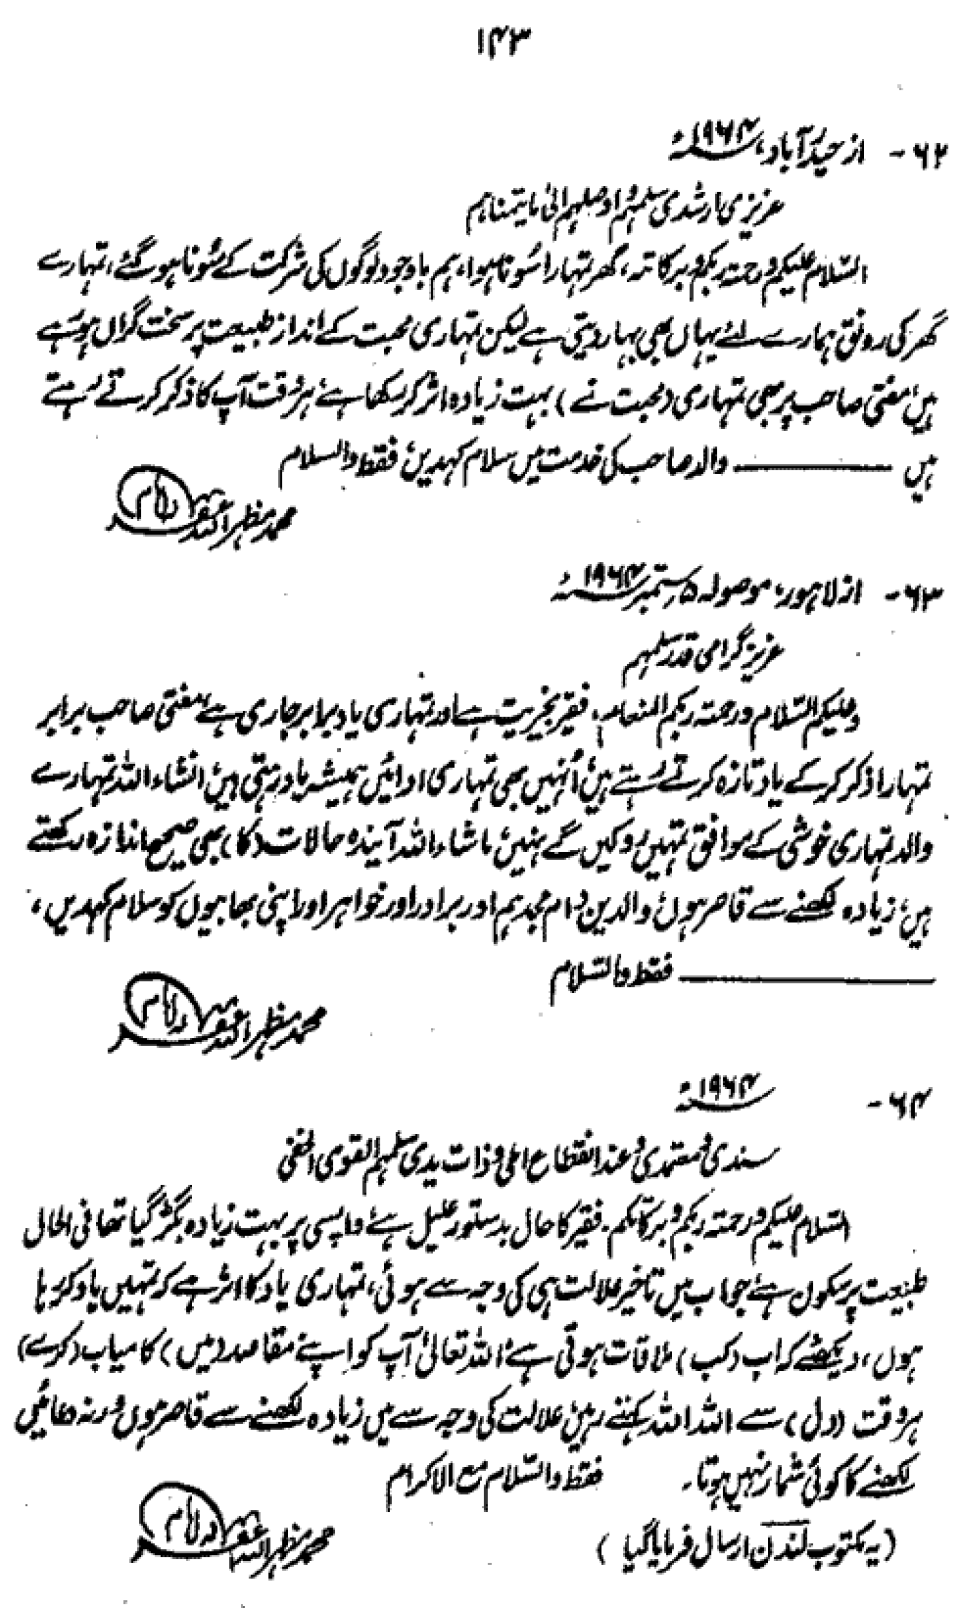 ۱۴۳
۶۲- از حیدرآباد، ۱۹۶۴ء
عزیزی ارشدی سلمہم و اوصلہم الیٰ ما یتمناہم
السّلام علیکم ورحمۃ ربکم وبرکاتہ، گھر تمہارا سُونا ہوا، ہم باوجود لوگوں کی شرکت کے سُونا ہوگئے، تمہارے
گھر کی رونق ہمارے لئے یہاں بھی بہار دیتی ہے لیکن تمہاری محبت کے انداز طبیعت پر سخت گراں ہو رہے
ہیں، مفتی صاحب پر بھی تمہاری (محبت نے) بہت زیادہ اثر کر رکھا ہے، ہر وقت آپ کا ذکر کرتے رہتے
ہیں ــــــــ والد صاحب کی خدمت میں سلام کہدیں، فقط والسلام
محمد مظہر اللہ غفرلہ
۶۳- از لاہور، موصولہ ۵ ستمبر ۱۹۶۴ء
عزیز گرامی قدر سلمہم
وعلیکم السّلام ورحمۃ ربکم المنعام، فقیر بخیریت ہے اور تمہاری یاد برابر جاری ہے، مفتی صاحب برابر
تمہارا ذکر کر کے یاد تازہ کرتے رہتے ہیں، اُنہیں بھی تمہاری ادائیں ہمیشہ یاد رہتی ہیں، انشاء اللہ تمہارے
والد تمہاری خوشی کے موافق تمہیں روکیں گے نہیں، ماشاء اللہ آیندہ حالات (کا) بھی صحیح اندازہ رکھتے
ہیں، زیادہ لکھنے سے قاصر ہوں، والدین دام مجدہم اور برادر اور خواہر اور اپنی بھابیوں کو سلام کہدیں،
ــــــــ فقط والسّلام
محمد مظہر اللہ غفرلہ
۶۴- ۱۹۶۴ء
سندی و معتمدی و عند انقطاع املی و ذات یدی سلمہم القوی الخفی
السّلام علیکم ورحمۃ ربکم وبرکاتکم۔ فقیر کا حال بدستور علیل ہے، واپسی پر بہت زیادہ بگڑ گیا تھا فی الحال
طبیعت پر سکون ہے، جواب میں تاخیر علالت ہی کی وجہ سے ہوئی، تمہاری یاد کا اثر ہے کہ تمہیں یاد کر رہا
ہوں، دیکھئے کہ اب (کب) ملاقات ہوتی ہے، اللہ تعالیٰ آپ کو اپنے مقاصد (میں) کامیاب (کرے)
ہر وقت (دل) سے اللہ اللہ کہتے رہیں، علالت کی وجہ سے میں زیادہ لکھنے سے قاصر ہوں ورنہ دعائیں
لکھنے کا کوئی شمار نہیں ہوتا۔ فقط والسّلام مع الاکرام
(یہ مکتوب لندن ارسال فرمایا گیا) محمد مظہر اللہ غفرلہ